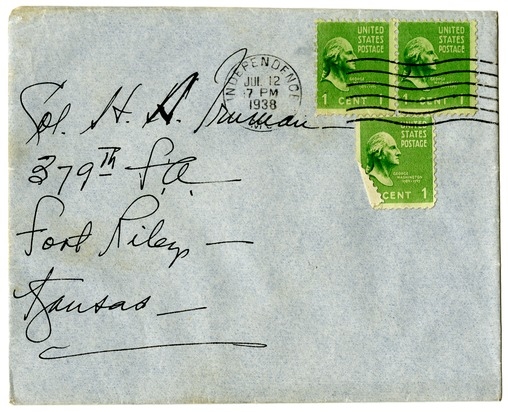 UNITED
STATES
POSTAGE
UNITED
STATES
POSTAGE
INDEPENDENCE
JUL 12
7 PM
1938
1 CENT 1
1 CENT 1
Col. H. A. Truman
379TH F.A.
Fort Riley —
Kansas —
UNITED
STATES
POSTAGE
GEORGE
WASHINGTON
CENT 1